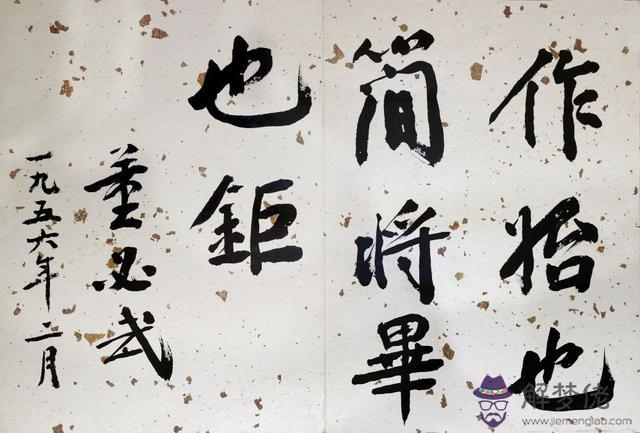 作始也
简将畢
也鉅
董必武
一九五六年二月
解梦佬
www.jiemenglao.com